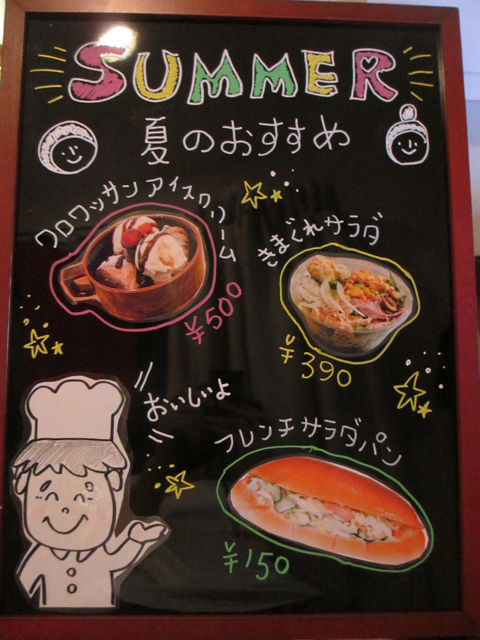 SUMMER
夏のおすすめ
クロワッサンアイスクリーム
¥500
きまぐれサラダ
¥390
おいしいよ
フレンチサラダパン
¥150